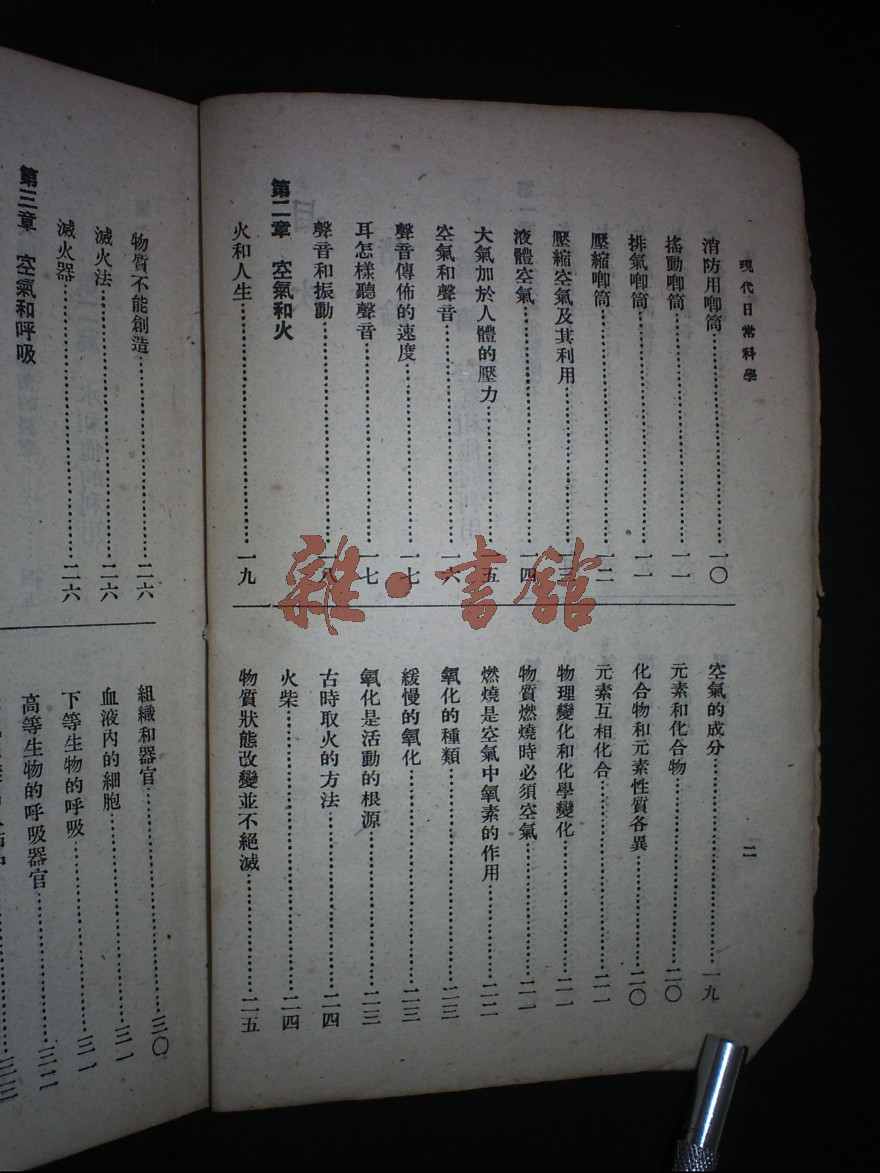 現代日常科學
二
消防用唧筒 一〇
搖動唧筒 一一
排氣唧筒 一一
壓縮唧筒 一二
壓縮空氣及其利用 一三
液體空氣 一四
大氣加於人體的壓力 一五
空氣和聲音 一六
聲音傳佈的速度 一七
耳怎樣聽聲音 一七
聲音和振動 一八
第二章 空氣和火
火和人生 一九
空氣的成分 一九
元素和化合物 二〇
化合物和元素性質各異 二〇
元素互相化合 二一
物理變化和化學變化 二一
物質燃燒時必須空氣 二一
燃燒是空氣中氧素的作用 二二
氧化的種類 二三
緩慢的氧化 二三
氧化是活動的根源 二三
古時取火的方法 二四
火柴 二四
物質狀態改變並不絕滅 二五
物質不能創造 二六
滅火法 二六
滅火器 二六
第三章 空氣和呼吸
組織和器官 三〇
血液內的細胞 三一
下等生物的呼吸 三一
高等生物的呼吸器官 三二
三三
雜·書館